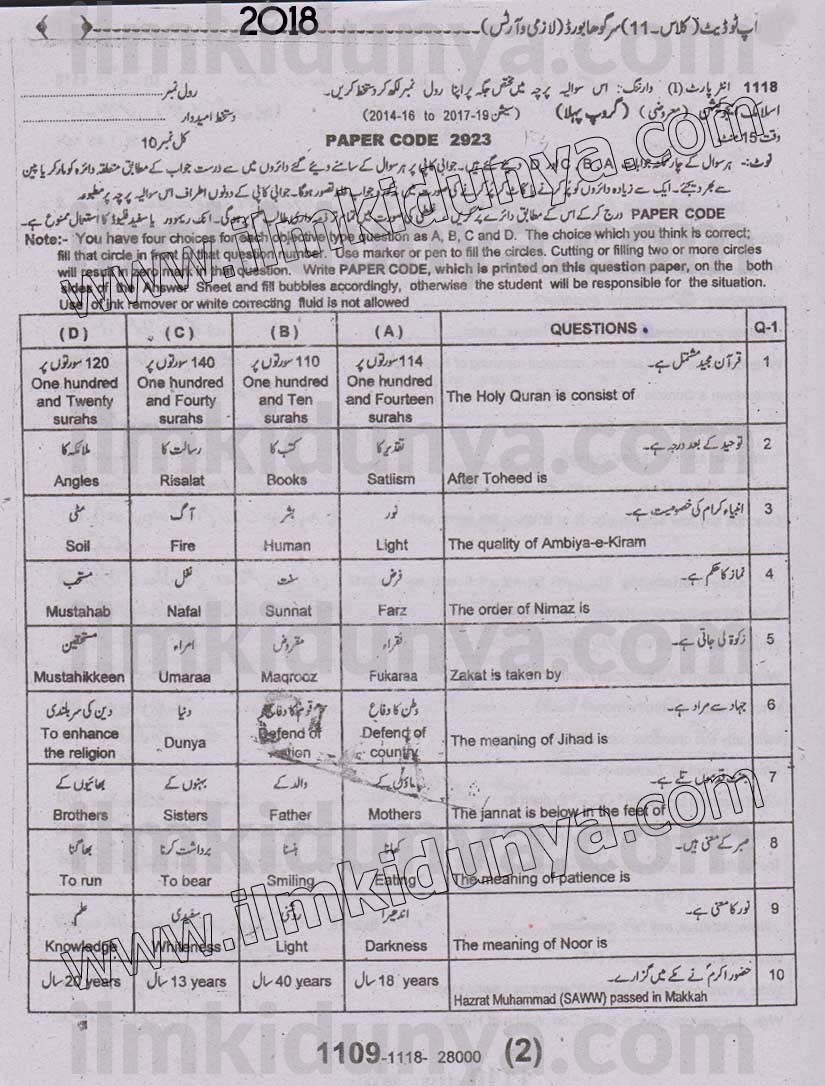 2018
اپ ٹو ڈیٹ (کلاس - 11) سرگودھا بورڈ (لازمی و آرٹس)
1118 انٹر پارٹ (I) وارننگ:۔ اس سوالیہ پرچہ میں مختص جگہ پر اپنا رول نمبر لکھ کر دستخط کریں۔ رول نمبر
اسلامک (معروضی) (گروپ پہلا) (سیشن 2017-19 to 2014-16) دستخط امیدوار
وقت 15 منٹ PAPER CODE 2923 کل نمبر 10
نوٹ:۔ ہر سوال کے چار A، B، C D دیئے گئے ہیں۔ جوابی کاپی پر ہر سوال کے سامنے دیئے گئے دائروں میں سے درست جواب کے مطابق متعلقہ دائرہ کو مارکر یا پین
سے بھر دیجئے۔ ایک سے زیادہ دائروں کو جواب غلط تصور ہوگا۔ جوابی کاپی کے دونوں اطراف اس سوالیہ پرچہ پر مطبوعہ
PAPER CODE درج کر کے اس کے مطابق دائرے پر کریں۔ انک ریموور یا سفید فلیوڈ کا استعمال ممنوع ہے۔
Note:- You have four choices for each objective type question as A, B, C and D. The choice which you think is correct;
fill that circle in front of that question number. Use marker or pen to fill the circles. Cutting or filling two or more circles
will result in zero mark in that question. Write PAPER CODE, which is printed on this question paper, on the both
sides of the Answer Sheet and fill bubbles accordingly, otherwise the student will be responsible for the situation.
Use of ink remover or white correcting fluid is not allowed
(D) (C) (B) (A) QUESTIONS Q-1
120 سورتوں پر 140 سورتوں پر 110 سورتوں پر 114 سورتوں پر قرآن مجید مشتمل ہے۔ 1
One hundred One hundred One hundred One hundred
and Twenty and Fourty and Ten and Fourteen The Holy Quran is consist of
surahs surahs surahs surahs
ملائکہ کا رسالت کا کتب کا تقدیر کا توحید کے بعد درجہ ہے۔ 2
Angles Risalat Books Satlism After Toheed is
مٹی آگ بشر نور انبیاء کرام کی خصوصیت ہے۔ 3
Soil Fire Human Light The quality of Ambiya-e-Kiram
مستحب نفل سنت فرض نماز کا حکم ہے۔ 4
Mustahab Nafal Sunnat Farz The order of Nimaz is
مستحقین امراء مقروض فقراء زکوٰۃ لی جاتی ہے۔ 5
Mustahikkeen Umaraa Maqrooz Fukaraa Zakat is taken by
دین کی سربلندی دنیا قوم کا دفاع وطن کا دفاع جہاد سے مراد ہے۔ 6
To enhance Dunya Defend of Defend of The meaning of Jihad is
the religion country
بھائیوں کے بہنوں کے والد کے ماؤں کے تلے ہے۔ 7
Brothers Sisters Father Mothers The jannat is below in the feet of
بھاگنا برداشت کرنا ہنسنا کھانا صبر کے معنی ہیں۔ 8
To run To bear Smiling Eating The meaning of patience is
علم سفیدی روشنی اندھیرا نور کا معنی ہے۔ 9
Knowledge Whiteness Light Darkness The meaning of Noor is
20 سال years 13 سال years 40 سال years 18 سال years حضور اکرمؐ نے مکے میں گزارے۔ 10
Hazrat Muhammad (SAWW) passed in Makkah
1109-1118- 28000 (2)
www.ilmkidunya.com
www.ilmkidunya.com
ilmkidunya.com
ilmkidunya.com
ilmkidunya.com
ilmkidunya.com
ilmkidunya.com